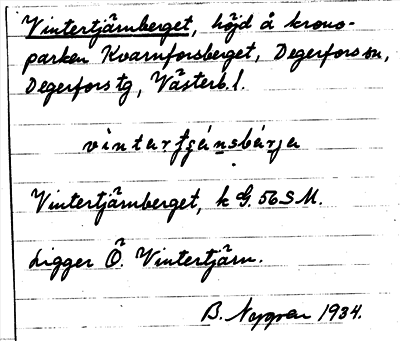 Vintertjärnberget, höjd å krono-
parken Kvarnforsberget, Degerfors sn,
Degerfors tg, Västerb. l.
Vintertjärnberget, k G. 56 SM.
Ligger Ö. Vintertjärn.
B. Nygren 1934.